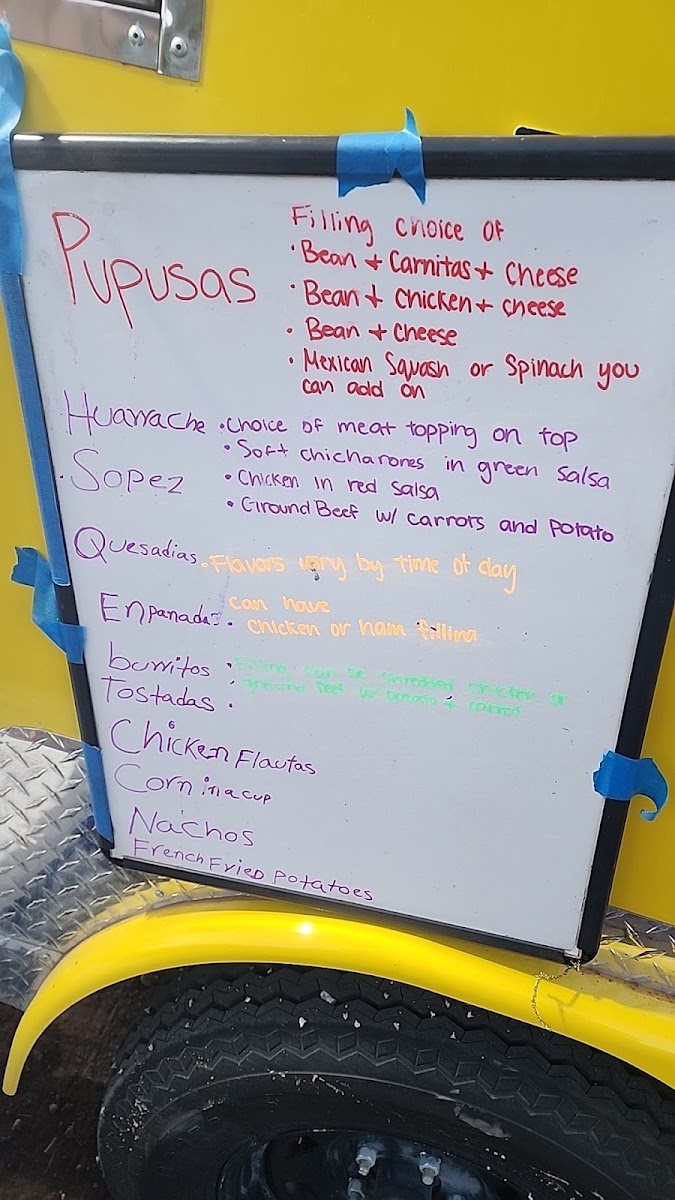 Pupusas
Filling choice of
• Bean + Carnitas + Cheese
• Bean + Chicken + cheese
• Bean + Cheese
• Mexican Squash or Spinach you
can add on
Huarrache • Choice of meat topping on top
• Soft chicharones in green salsa
• Sopez • Chicken in red salsa
• Ground Beef w/ carrots and Potato
Quesadias - Flavors vary by time of day
Enpanadas • can have
chicken or ham filling
burritos • Filling can be shredded chicken or
Tostadas • ground beef w/ potato + carrot
Chicken Flautas
Corn in a cup
Nachos
French Fried Potatoes